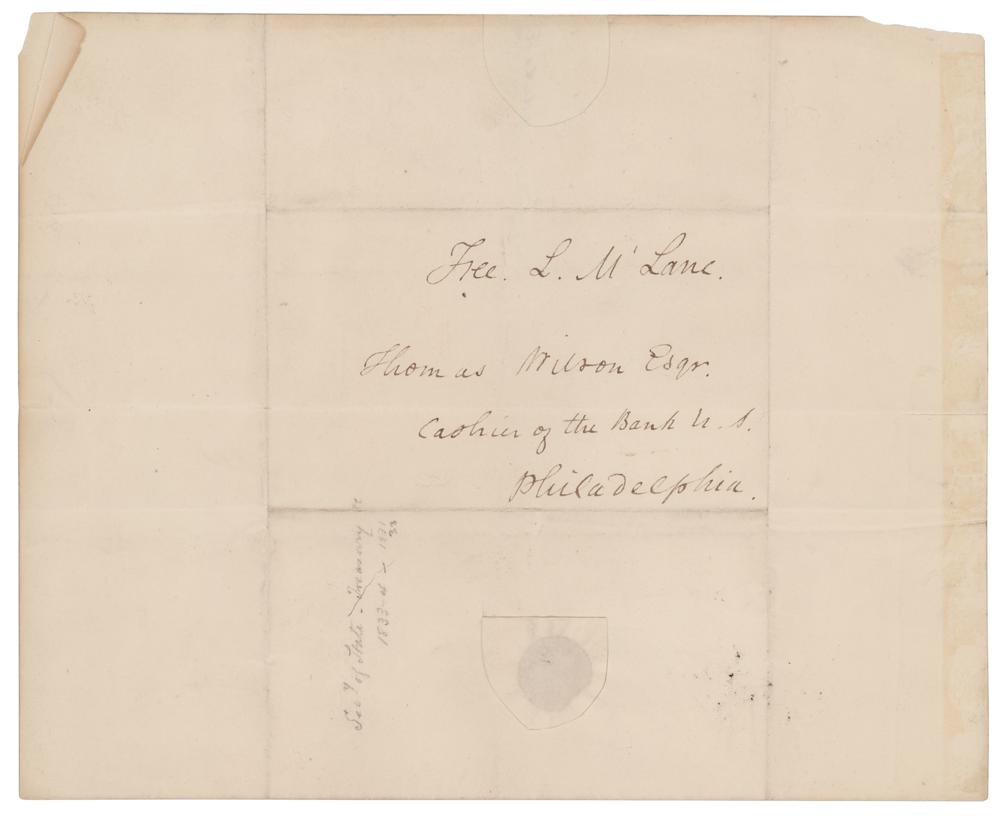 Free. L. Mc Lane.
Thomas Wilson Esqr.
Cashier of the Bank U. S.
Philadelphia.
Secy of State - Treasury
1833-4 - 1831